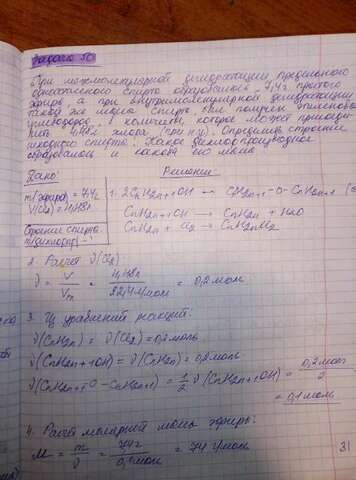 Задача 30
При межмолекулярной дегидратации предельного
одноатомного спирта образовалось 7,4 г простого
эфира, а при внутримолекулярной дегидратации
такой же массы спирта был получен этиленовый
углеводород, в количестве которое может присоеди-
нить 4,48 л хлора (при н.у.). Определить строение
исходного спирта. Какое дихлорпроизводное
образовалось и какова его масса
Дано:
Решение:
m(эфира) = 7,4 г
V(Cl2) = 4,48 л
Строение спирта
1. 2CnH2n+1OH → CnH2n+1-O-CnH2n+1
CnH2n+1OH → CnH2n + H2O
CnH2n + Cl2 → CnH2nCl2
2. Расчёт ν(Cl2)
ν = V/Vm = 4,48 л/22,4 л/моль = 0,2 моль
3. Из уравнений реакций:
ν(CnH2n) = ν(Cl2) = 0,2 моль
ν(CnH2n+1OH) = ν(CnH2n) = 0,2 моль
ν(CnH2n+1O-CnH2n+1) = 1/2 ν(CnH2n+1OH) = 0,2 моль/2
= 0,1 моль
4. Расчёт молярной массы эфира:
M = m/ν = 7,4 г/0,1 моль = 74 г/моль
31